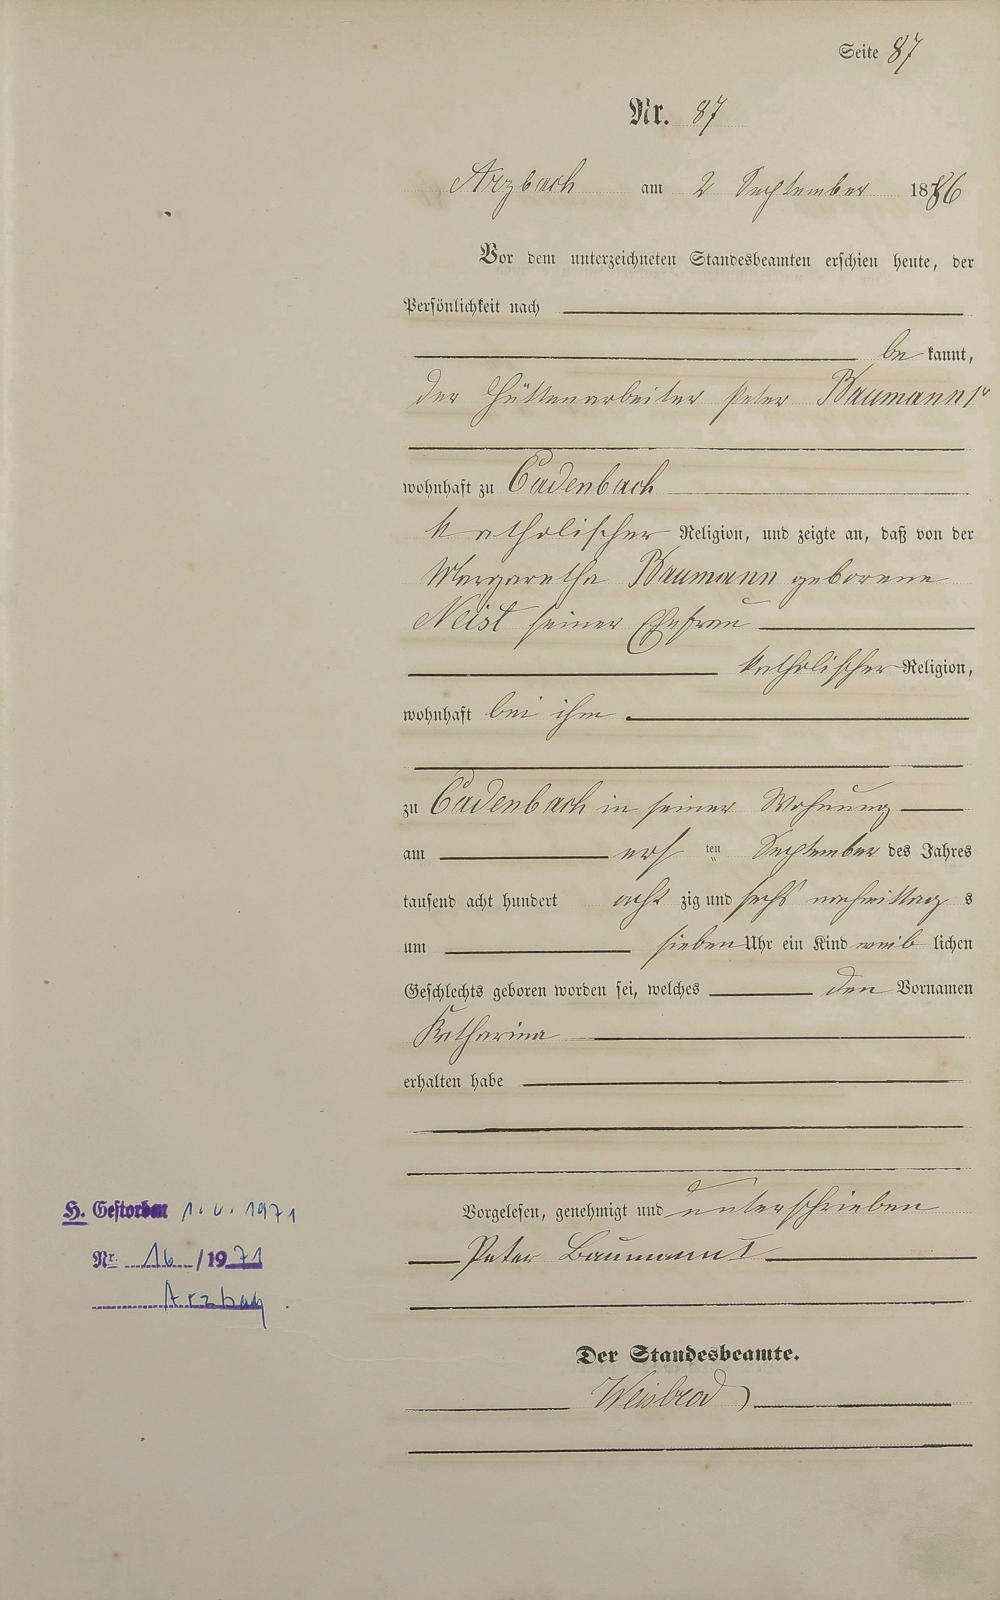 Seite 87
Nr. 87
Arzbach am 2 September 1886
Vor dem unterzeichneten Standesbeamten erschien heute, der
Persönlichkeit nach
be kannt,
der Hüttenarbeiter Peter Baumann
wohnhaft zu Cadenbach
katholischer Religion, und zeigte an, daß von der
Margaretha Baumann geborene
Neist seiner Ehefrau
katholischer Religion,
wohnhaft bei ihm
zu Cadenbach in seiner Wohnung
am ersten September des Jahres
tausend acht hundert acht zig und sechs nachmittag s
um sieben Uhr ein Kind weib lichen
Geschlechts geboren worden sei, welches den Vornamen
Katharina
erhalten habe
Vorgelesen, genehmigt und unterschrieben
Peter Baumann
Der Standesbeamte.
Weisbrod
H. Gestorben 1. 1971
Nr. 16 / 1971
Arzbach